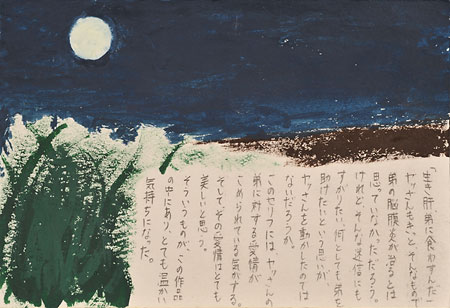 「生き肝弟に食わすんだ」
ヤッさんもきっと、そんなもので
弟の脳膜炎が治るとは
思っていなかっただろう。
けれどそんな迷信にも
すがりたい、何としても弟を
助けたいという思いが、
ヤッさんを動かしたのでは
ないだろうか。
このセリフには、ヤッさんの
弟に対する愛情が
こめられている気がする。
そしてその愛情はとても
美しいと思う。
そういうものが、この作品
の中にあり、とても温かい
気持ちになった。